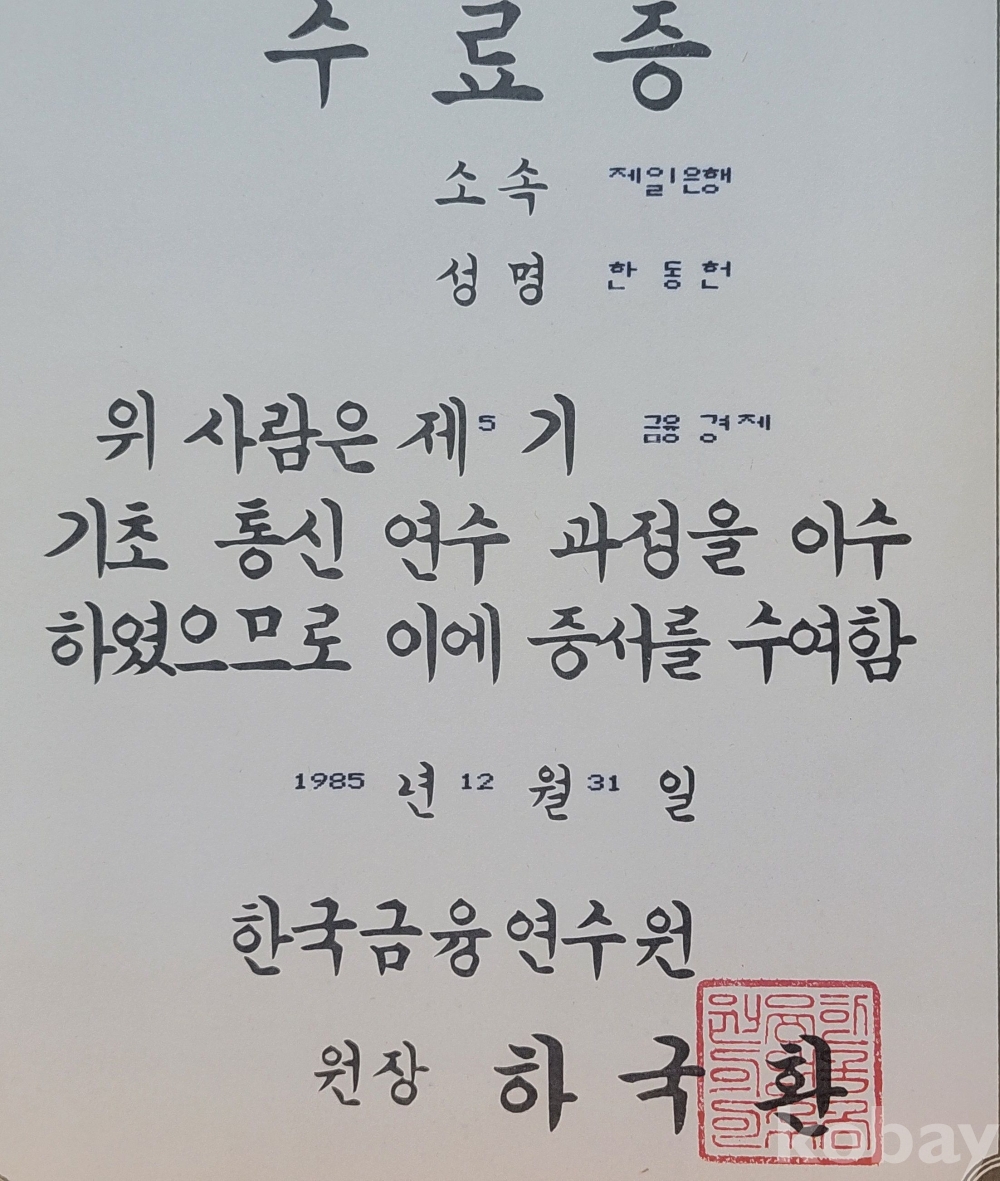 수료증
소속 제일은행
성명 한동헌
위 사람은 제 5 기 금융경제
기초 통신 연수 과정을 이수
하였으므로 이에 증서를 수여함
1985 년 12 월 31 일
한국금융연수원
원장 하국환
kobay